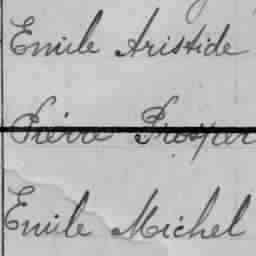 Emile Aristide
Pierre Prosper
Emile Michel